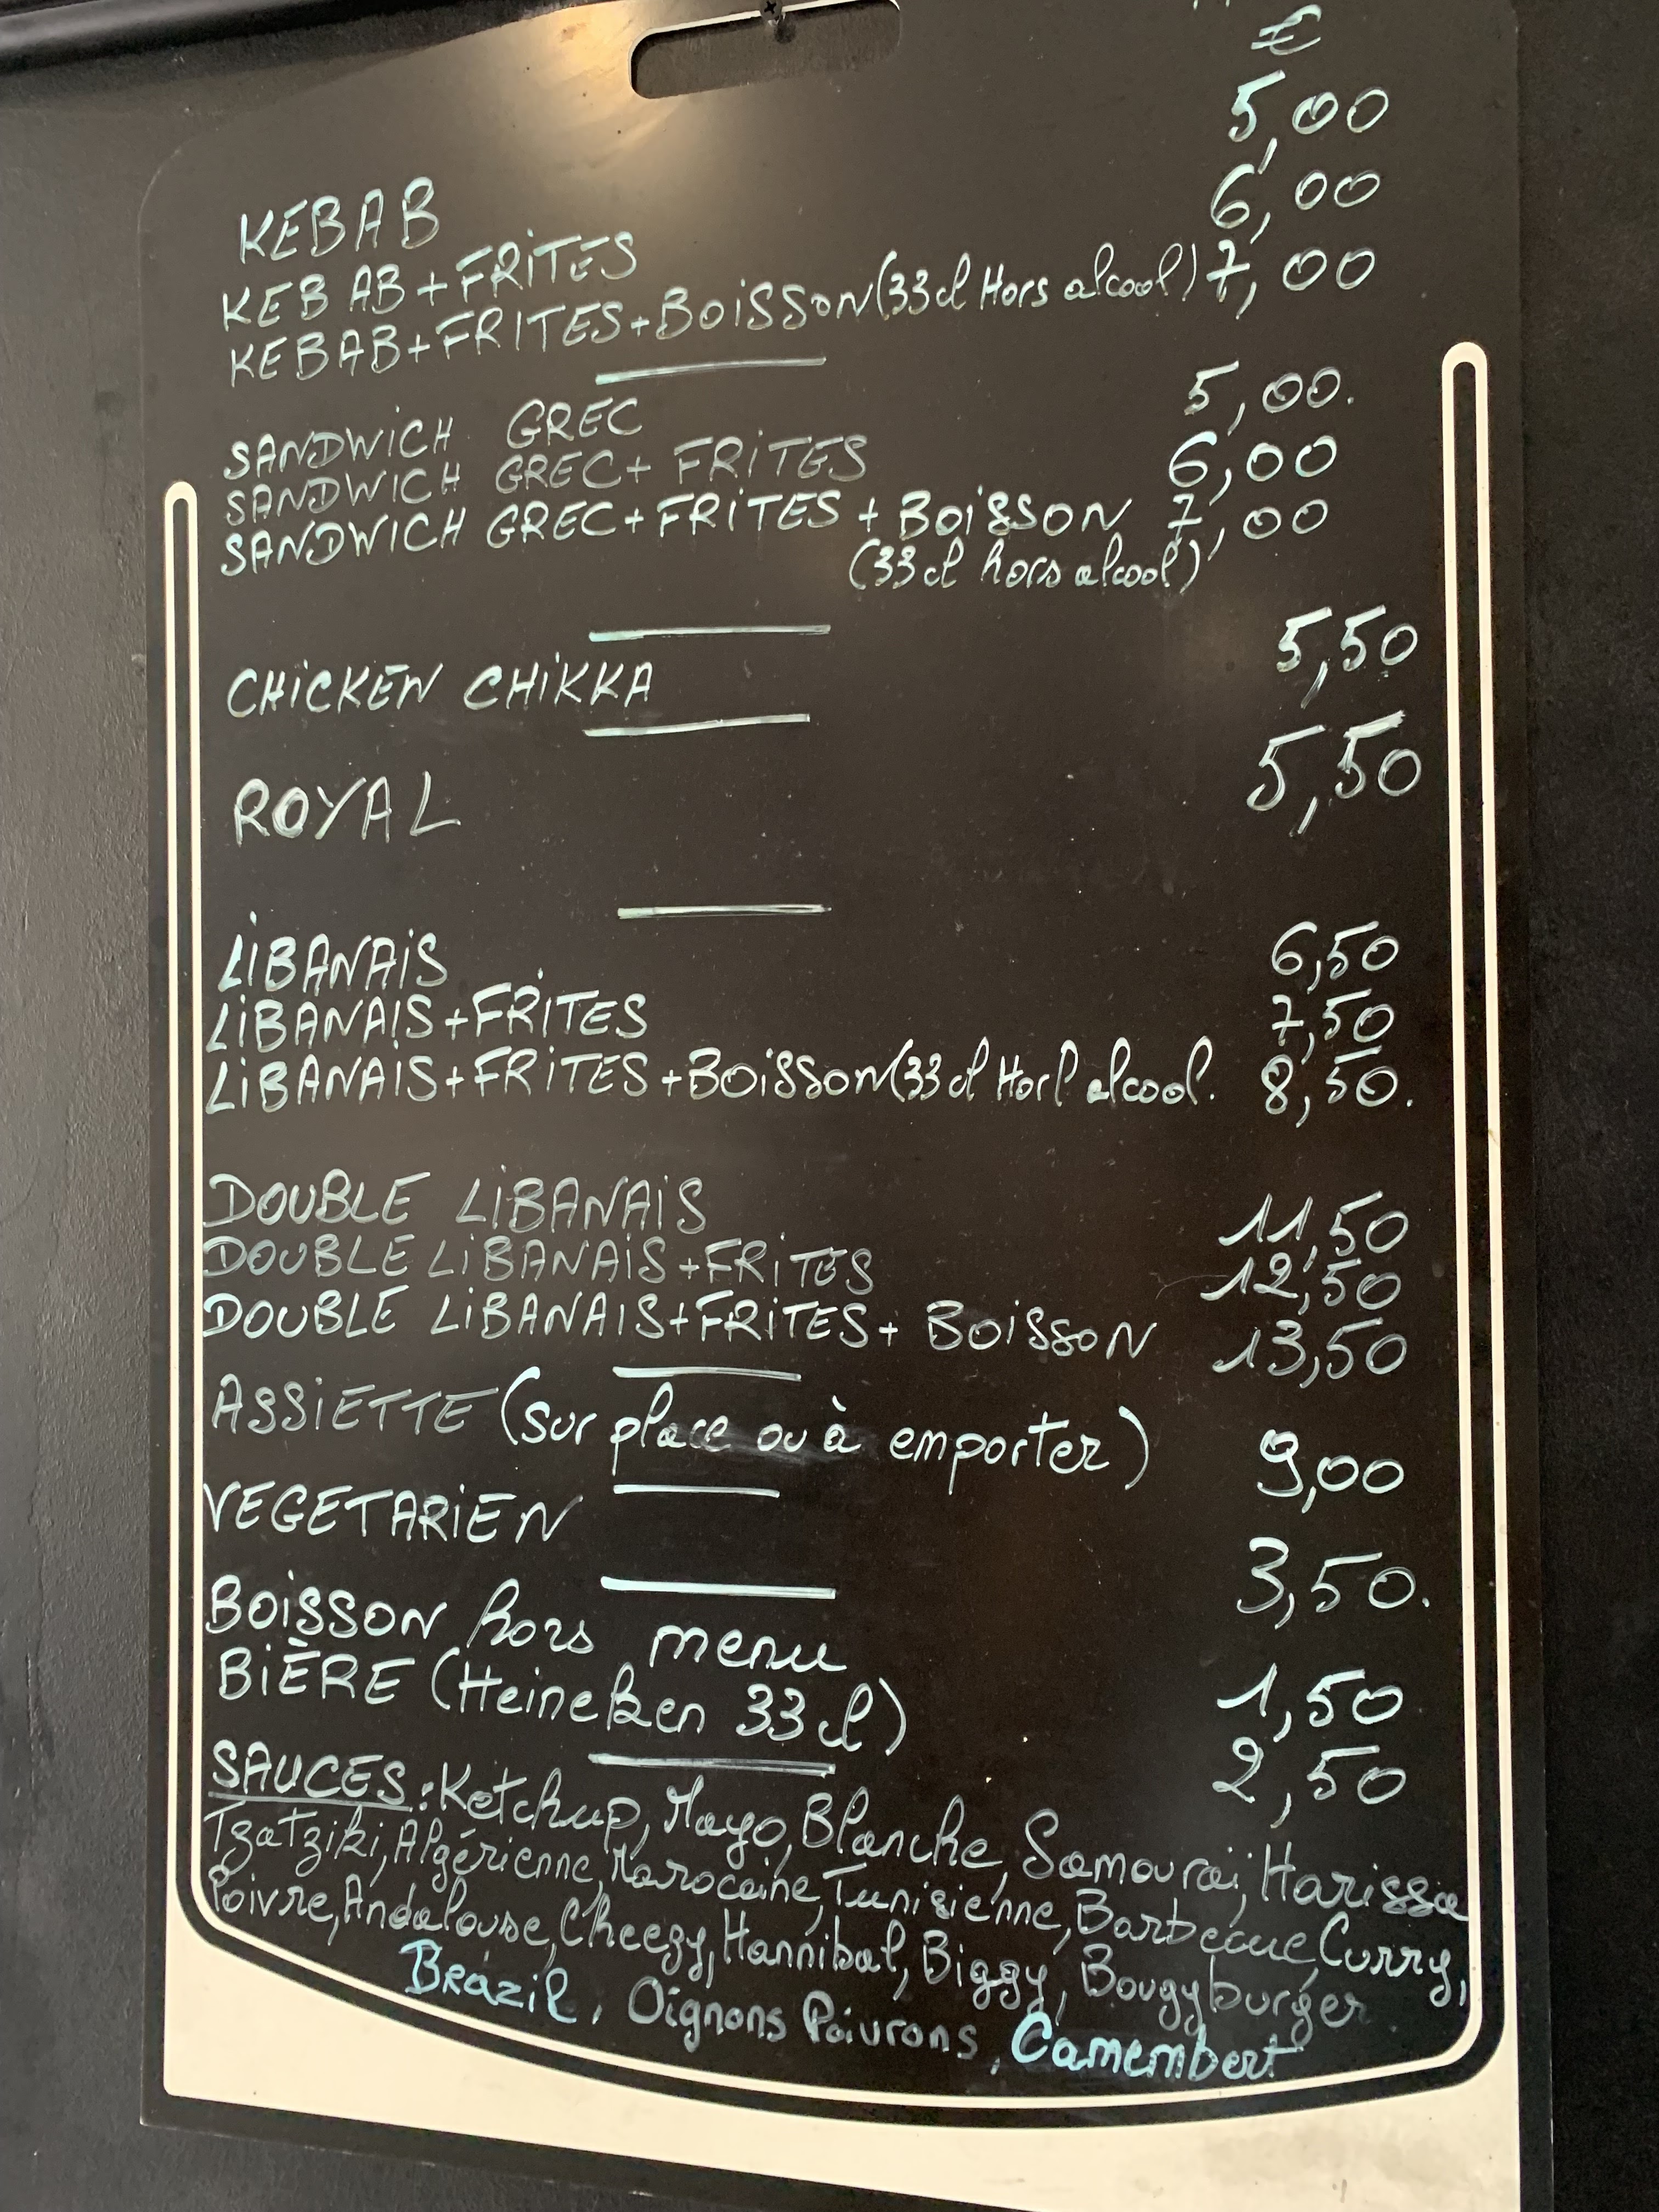 €
KEBAB 5,00
KEBAB+FRITES 6,00
KEBAB+FRITES+BOISSON(33cl Hors alcool) 7,00
SANDWICH GREC 5,00.
SANDWICH GREC+ FRITES 6,00
SANDWICH GREC+FRITES + BOISSON 7,00
(33cl hors alcool)
CHICKEN CHIKKA 5,50
ROYAL 5,50
LIBANAIS 6,50
LIBANAIS+FRITES 7,50
LIBANAIS+FRITES+BOISSON(33cl Hors alcool. 8,50.
DOUBLE LIBANAIS 11,50
DOUBLE LIBANAIS+FRITES 12,50
DOUBLE LIBANAIS+FRITES+ BOISSON 13,50
ASSIETTE (sur place ou à emporter) 9,00
VEGETARIEN 3,50.
BOISSON hors menu 1,50
BIÈRE (Heineken 33cl) 2,50
SAUCES: Ketchup, Mayo, Blanche, Samouraï, Harissa
Tzatziki, Algérienne, Marocaine, Tunisienne, Barbecue, Curry,
Poivre, Andalouse, Cheezy, Hannibal, Biggy, Bougyburger
Brazil, Oignons Poivrons, Camembert